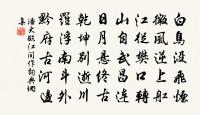 白鳥沒飛煙
微風逆上船
江從樊口轉
山自武昌連
日月懸終古
乾坤別逝川
羅浮南斗外
黔府古河邊
潘大臨江間作詞典網
集